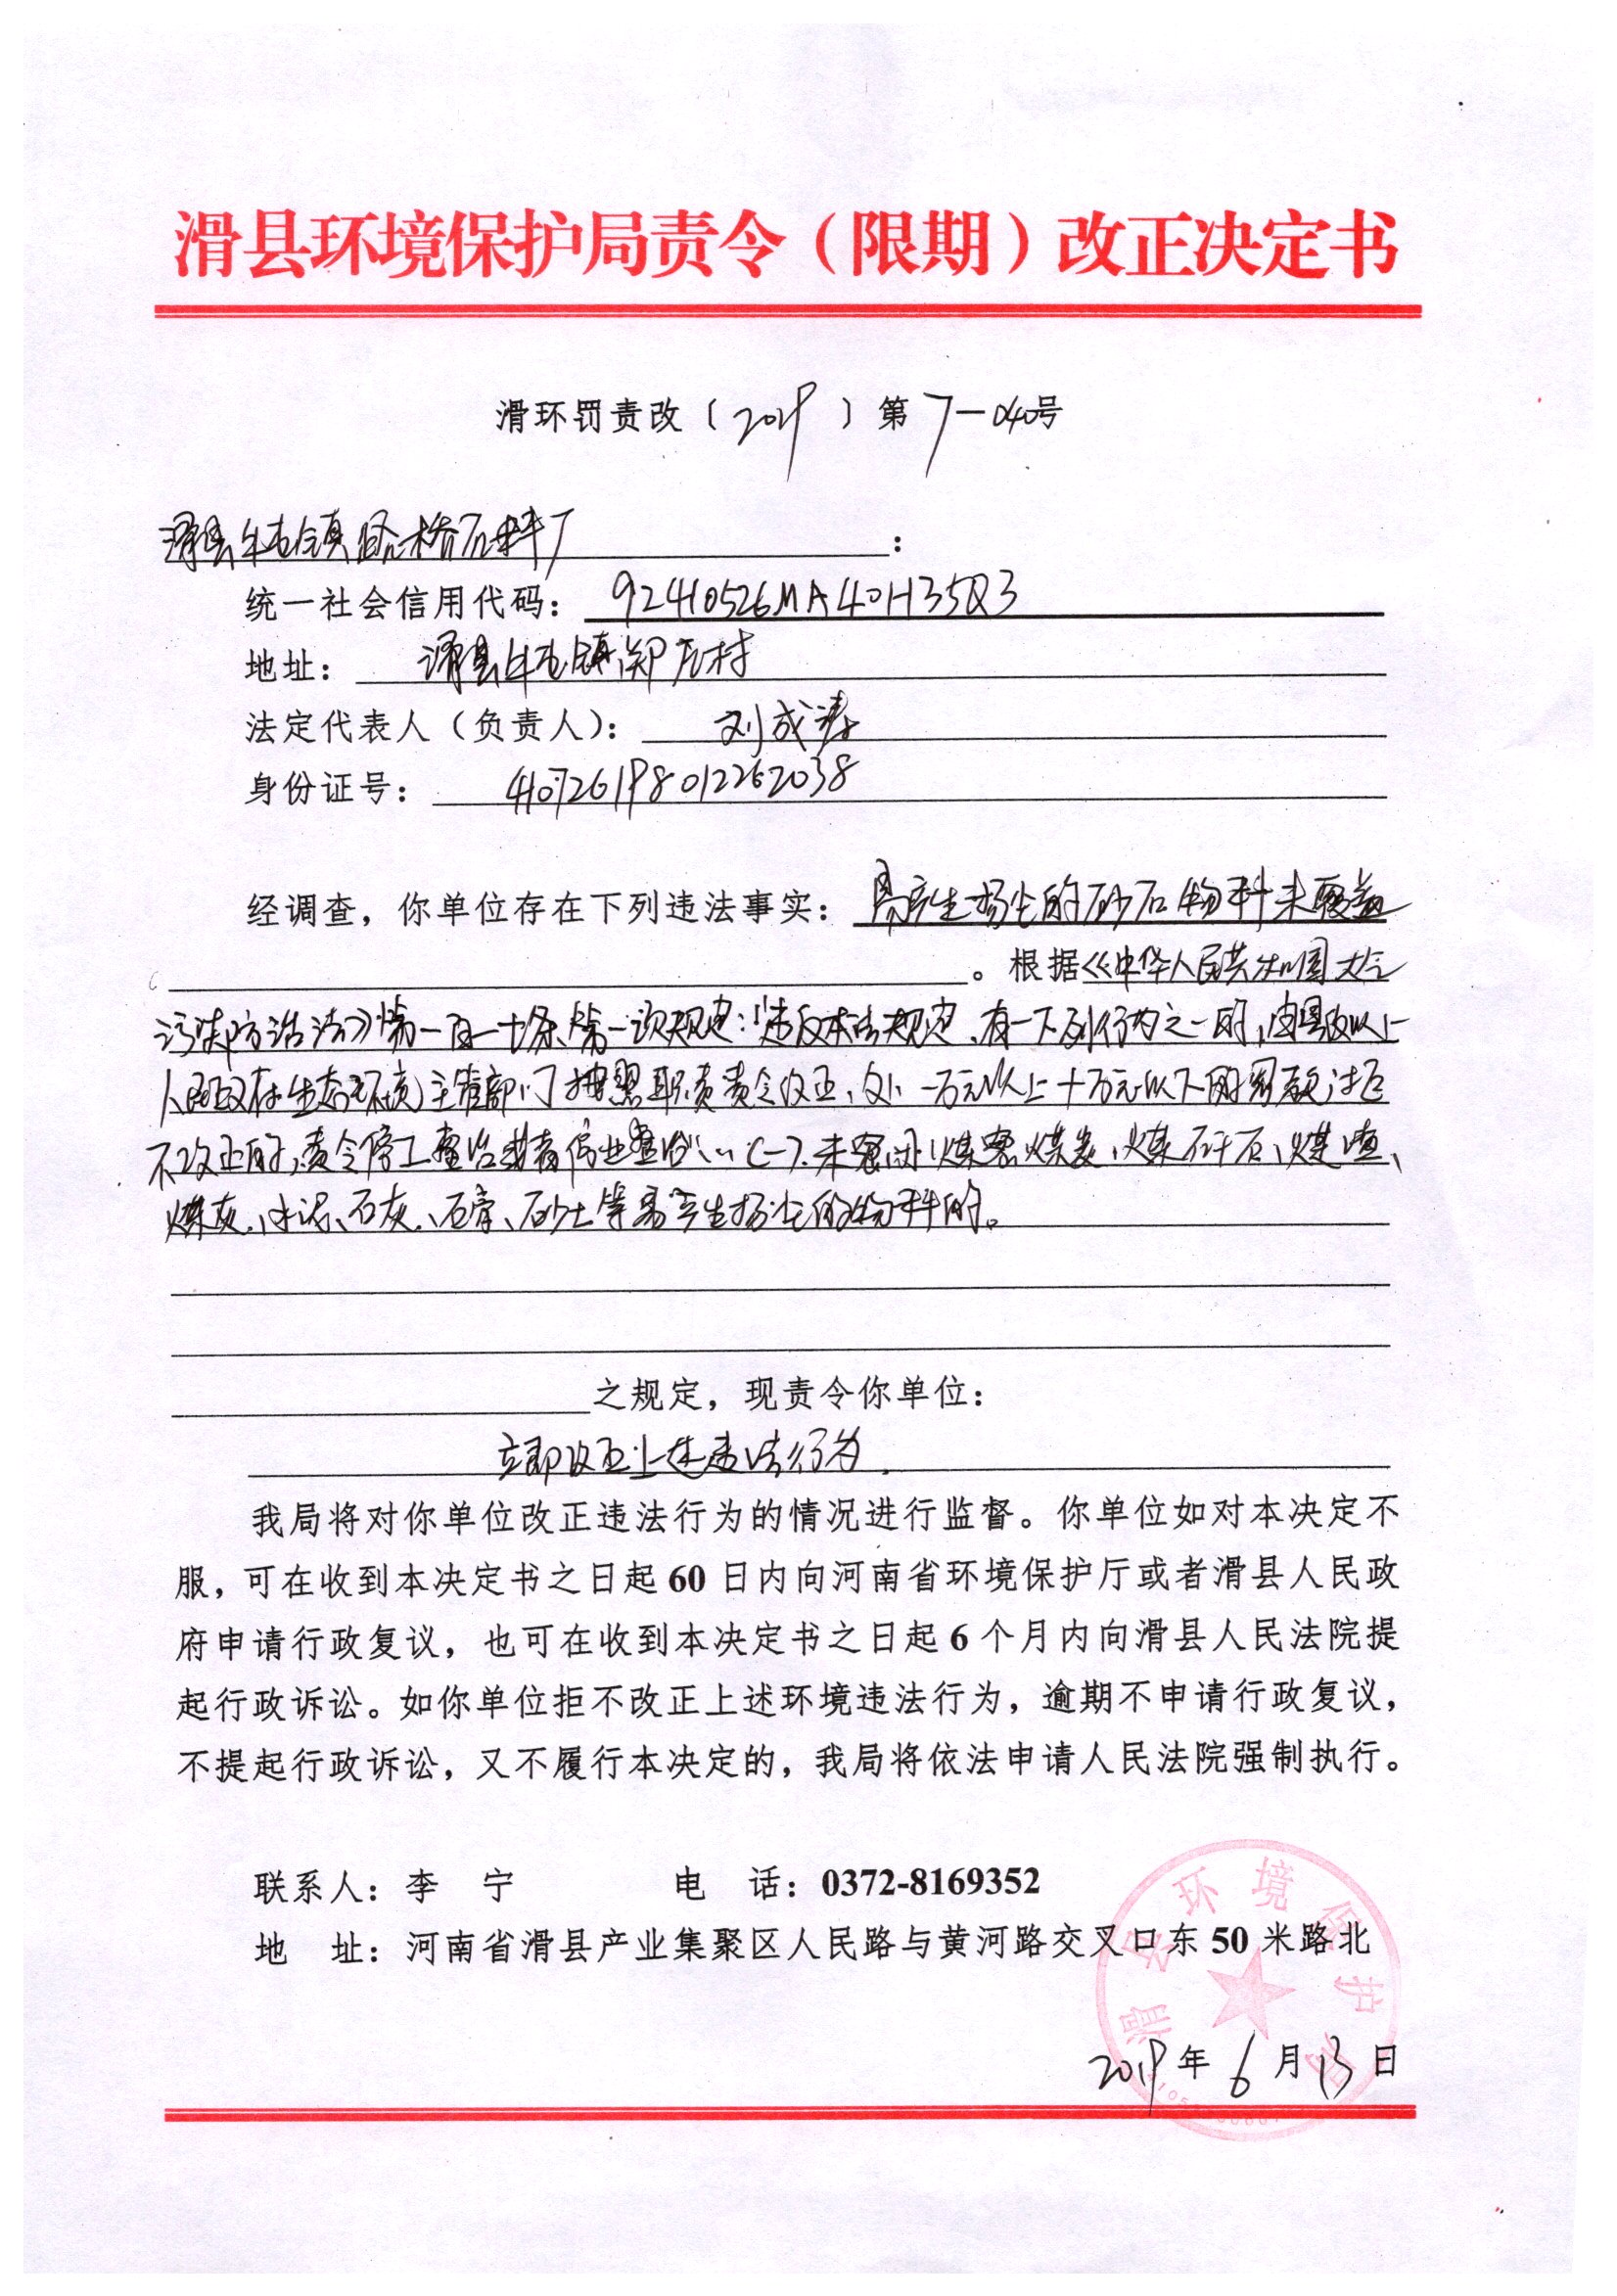 滑县环境保护局责令（限期）改正决定书
滑环罚责改〔2019〕第7-040号
滑县牛屯镇路桥石料厂：
统一社会信用代码：92410526MA40H35Q3
地址：滑县牛屯镇郑庄村
法定代表人（负责人）：刘成涛
身份证号：410726198012262038
经调查，你单位存在下列违法事实：易产生扬尘的砂石物料未覆盖
。根据《中华人民共和国大气
污染防治法》第一百一十七条第一项规定：“违反本法规定，有下列行为之一的，由县级以上
人民政府生态环境主管部门按照职责责令改正，处一万元以上十万元以下的罚款；拒
不改正的，责令停工整治或者停业整治：（一）未密闭煤炭、煤矸石、煤渣、
煤灰、水泥、石灰、石膏、砂土等易产生扬尘的物料的。
之规定，现责令你单位：
立即改正上述违法行为。
我局将对你单位改正违法行为的情况进行监督。你单位如对本决定不
服，可在收到本决定书之日起60日内向河南省环境保护厅或者滑县人民政
府申请行政复议，也可在收到本决定书之日起6个月内向滑县人民法院提
起行政诉讼。如你单位拒不改正上述环境违法行为，逾期不申请行政复议，
不提起行政诉讼，又不履行本决定的，我局将依法申请人民法院强制执行。
联系人：李 宁 电 话：0372-8169352
地 址：河南省滑县产业集聚区人民路与黄河路交叉口东50米路北
滑县环境保护局
2019年6月13日